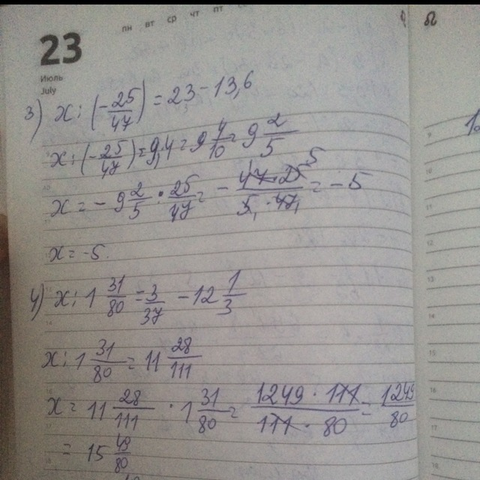 пн вт ср чт пт
23
Июль
July
3) x : (-25/47) = 23 - 13,6
x : (-25/47) = 9,4 = 9 4/10 = 9 2/5
x = - 9 2/5 · 25/47 = - 47 · 25 5/5 1 · 47 1 = -5
x = -5.
4) x : 1 31/80 = 3/37 - 12 1/3
x : 1 31/80 = 11 28/111
x = 11 28/111 · 1 31/80 = 1249 · 111/111 · 80 = 1249/80
= 15 49/80